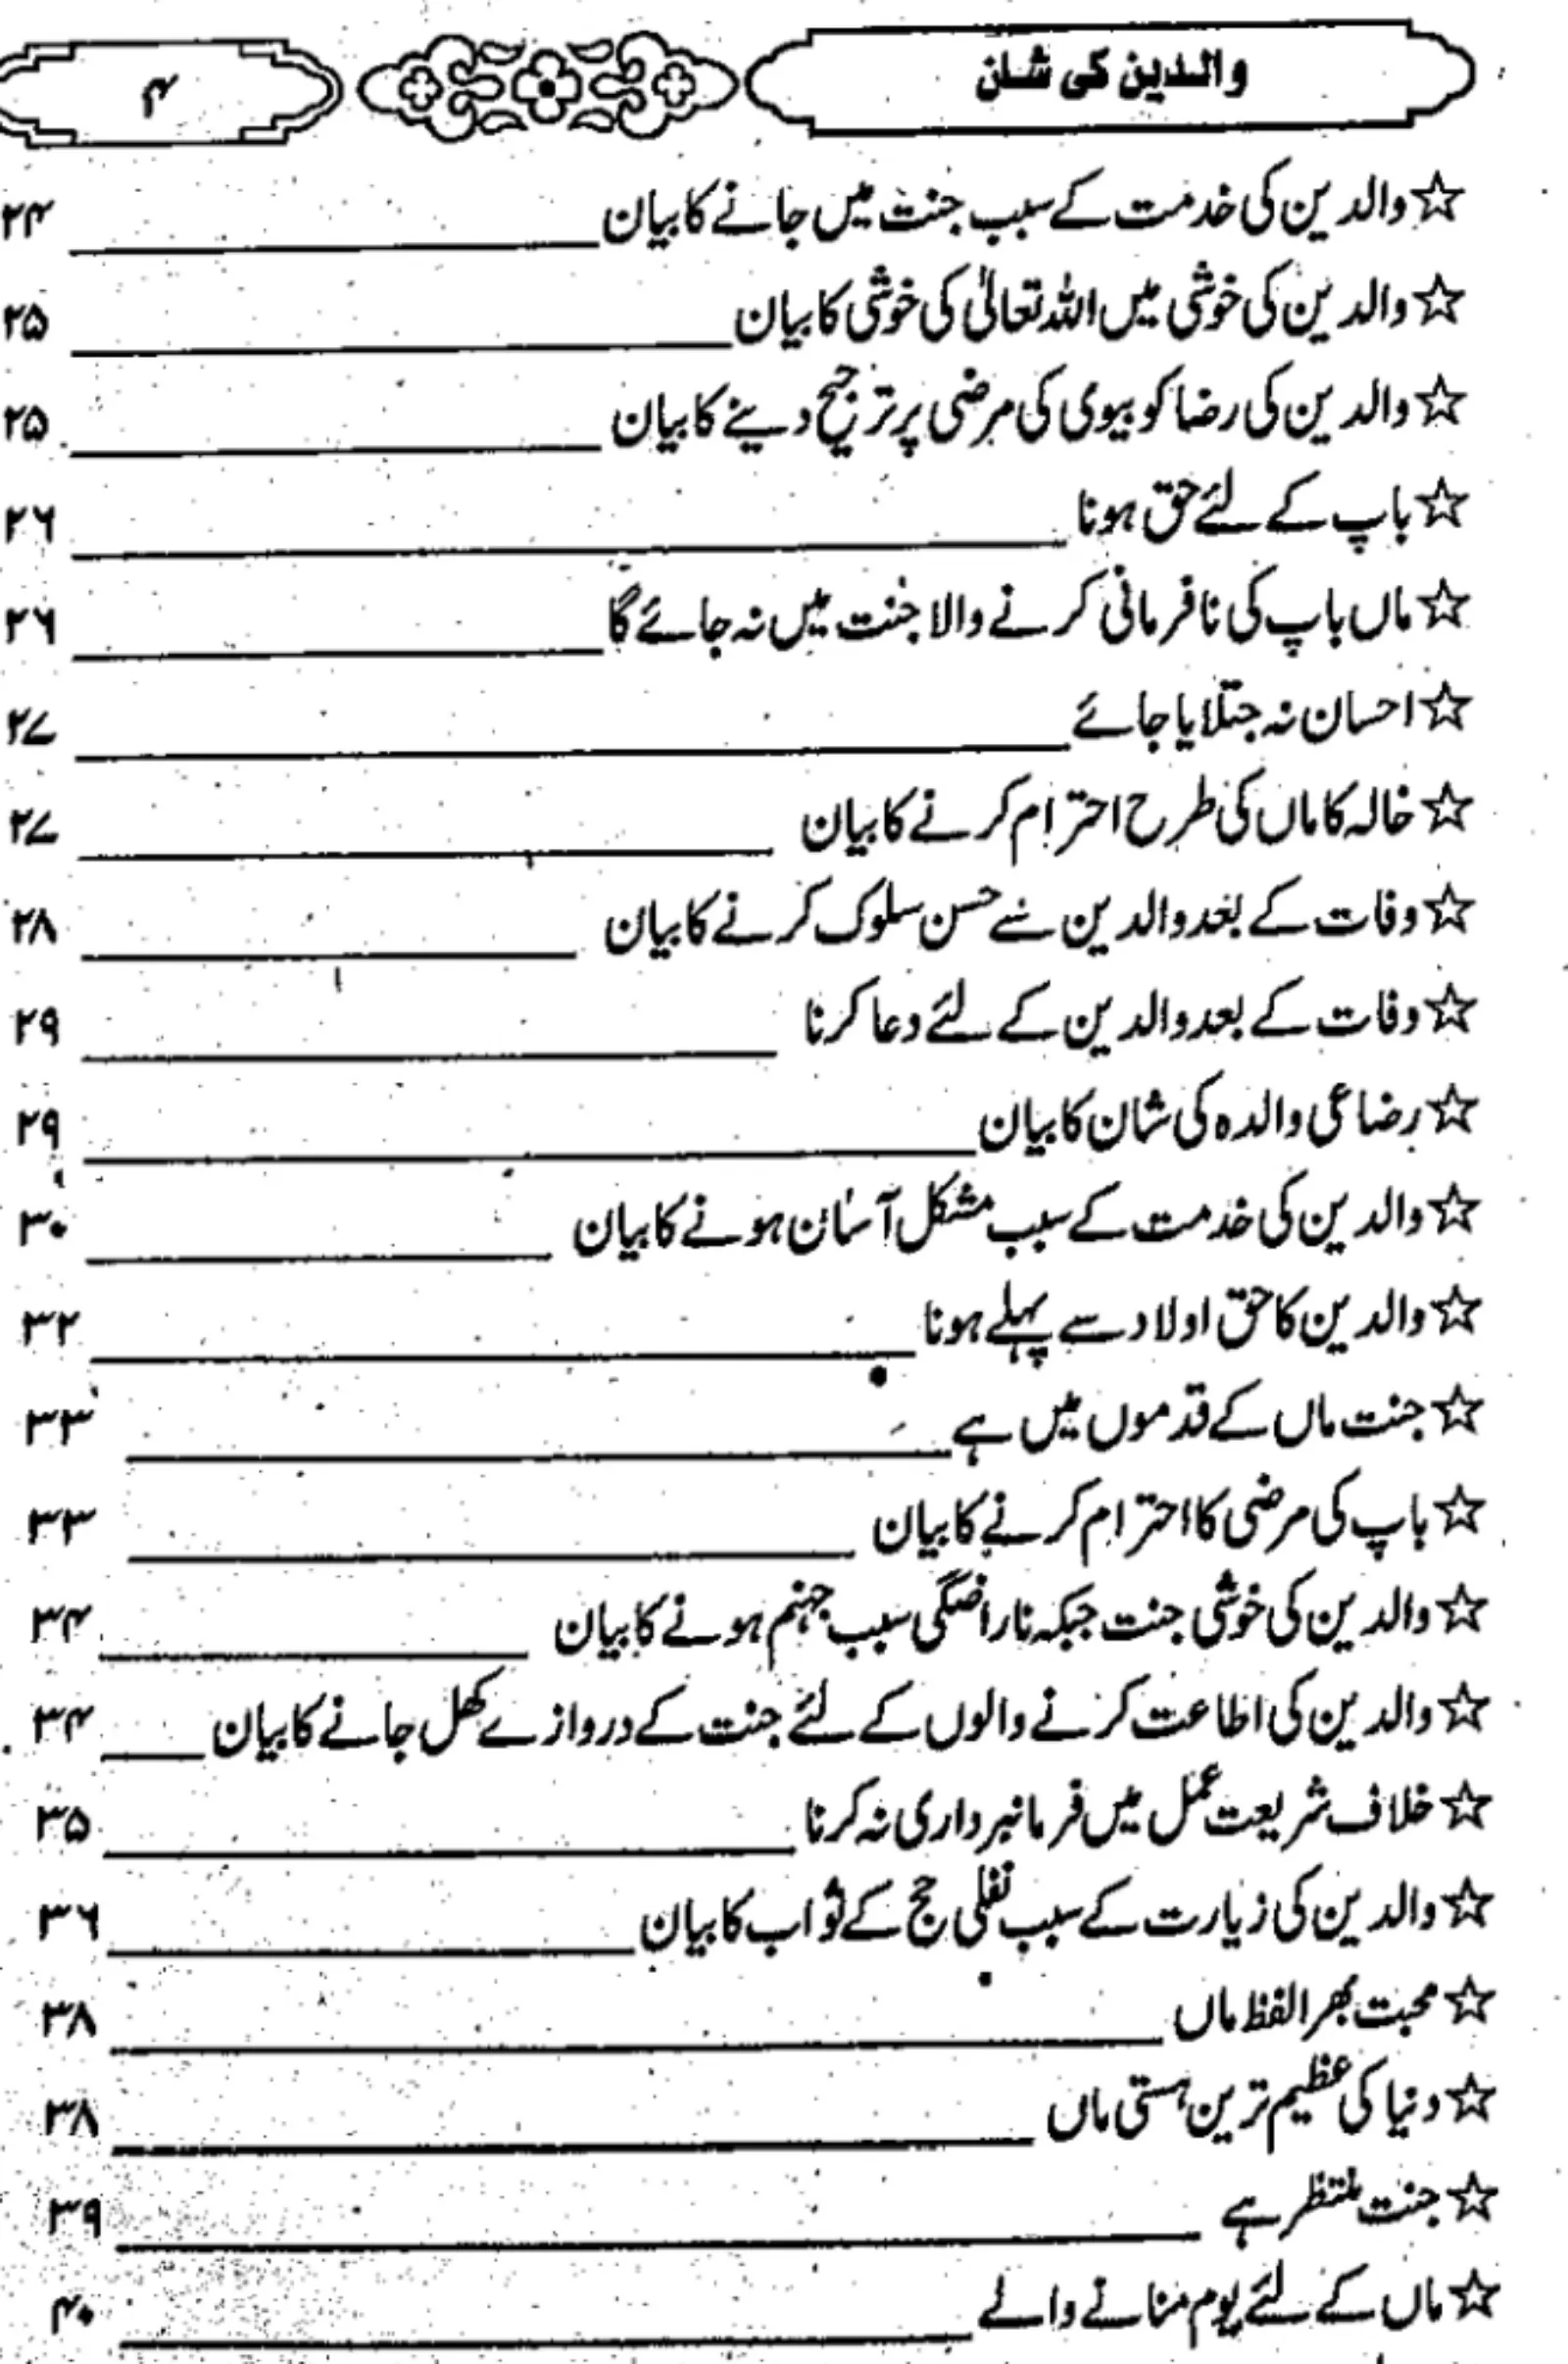 والدین کی شان ۴
☆ والدین کی خدمت کے سبب جنت میں جانے کا بیان ۲۴
☆ والدین کی خوشی میں اللہ تعالیٰ کی خوشی کا بیان ۲۵
☆ والدین کی رضا کو بیوی کی مرضی پر ترجیح دینے کا بیان ۲۵
☆ باپ کے لئے حق ہونا ۲۶
☆ ماں باپ کی نافرمانی کرنے والا جنت میں نہ جائے گا ۲۶
☆ احسان نہ جتلایا جائے ۲۷
☆ خالہ کا ماں کی طرح احترام کرنے کا بیان ۲۷
☆ وفات کے بعد والدین سے حسن سلوک کرنے کا بیان ۲۸
☆ وفات کے بعد والدین کے لئے دعا کرنا ۲۹
☆ رضاعی والدہ کی شان کا بیان ۲۹
☆ والدین کی خدمت کے سبب مشکل آسان ہونے کا بیان ۳۰
☆ والدین کا حق اولاد سے پہلے ہونا ۳۲
☆ جنت ماں کے قدموں میں ہے ۳۳
☆ باپ کی مرضی کا احترام کرنے کا بیان ۳۳
☆ والدین کی خوشی جنت جبکہ ناراضگی سبب جہنم ہونے کا بیان ۳۴
☆ والدین کی اطاعت کرنے والوں کے لئے جنت کے دروازے کھل جانے کا بیان ۳۴
☆ خلاف شریعت عمل میں فرمانبرداری نہ کرنا ۳۵
☆ والدین کی زیارت کے سبب نفلی حج کے ثواب کا بیان ۳۶
☆ محبت بھرا لفظ ماں ۳۸
☆ دنیا کی عظیم ترین ہستی ماں ۳۸
☆ جنت منتظر ہے ۳۹
☆ ماں کے لئے یوم منانے والے ۴۰